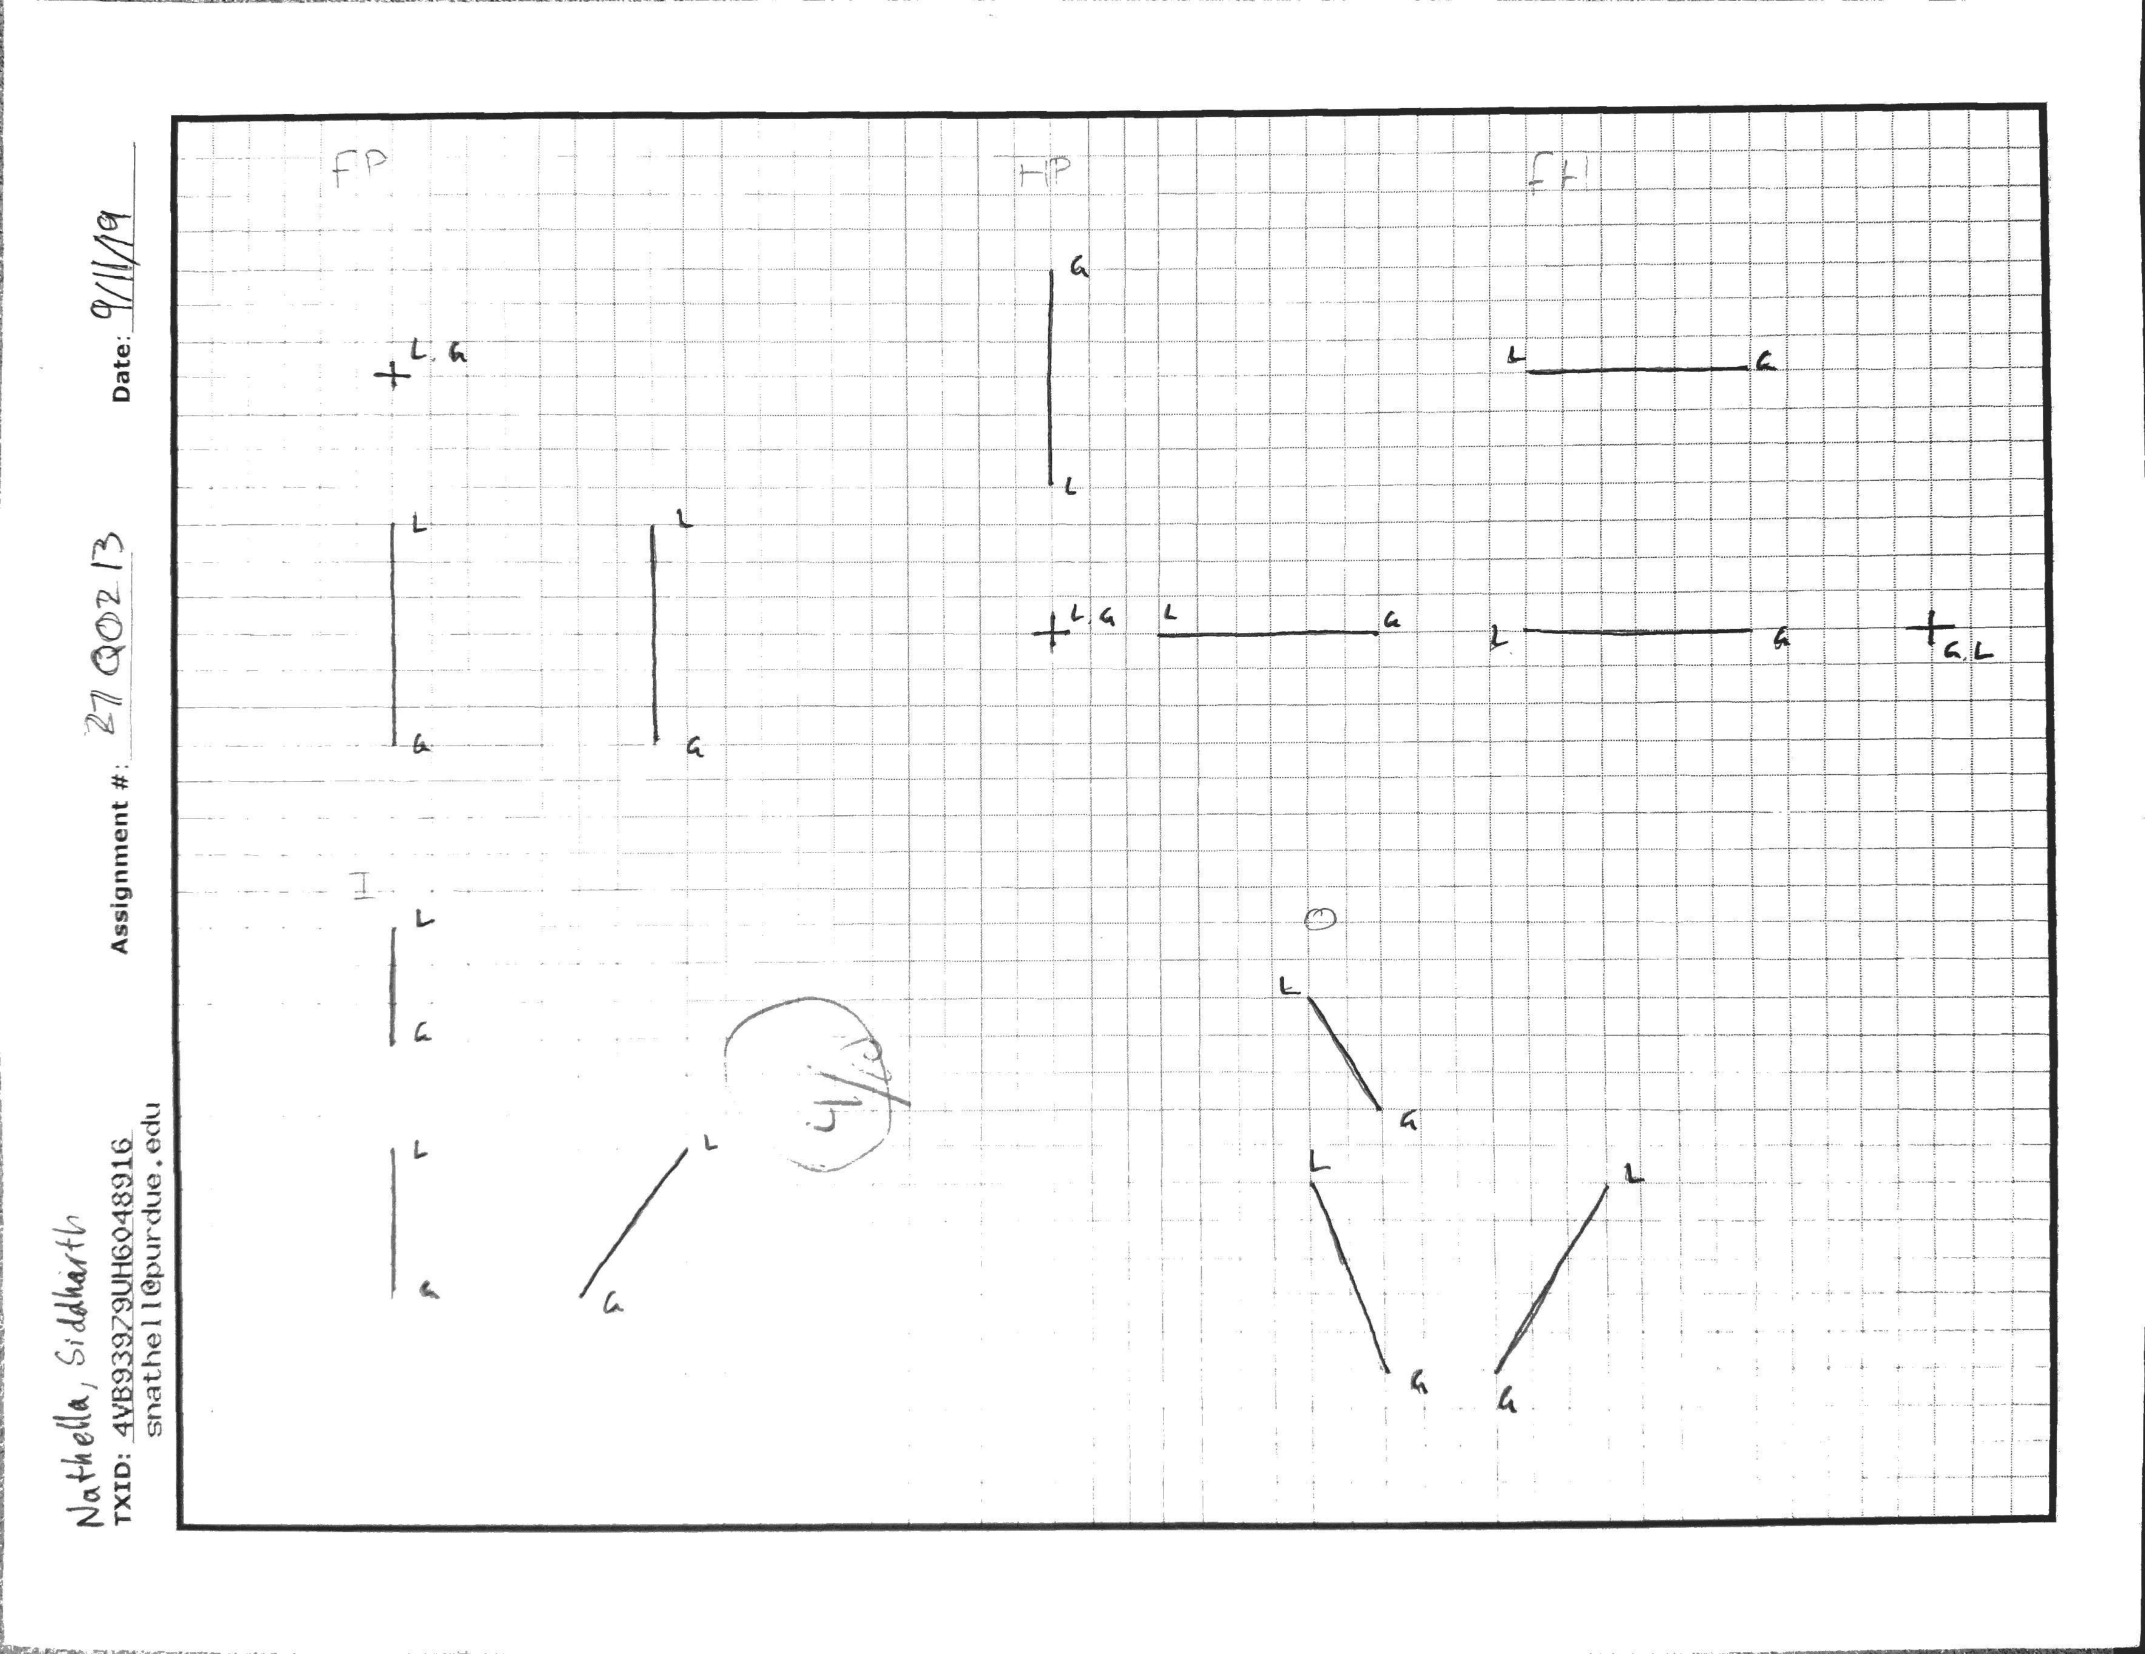 Nathella, Siddharth
TXID: 4VB93979UH6048916
snathell@purdue.edu
Assignment #: 27 Q02 13
Date: 9/11/19
FP
HP
G
L, G
L G
L
L L
L, G L G
L G
G, L
G G
I
L
O
L
G
G
L L
L L
G G
G G